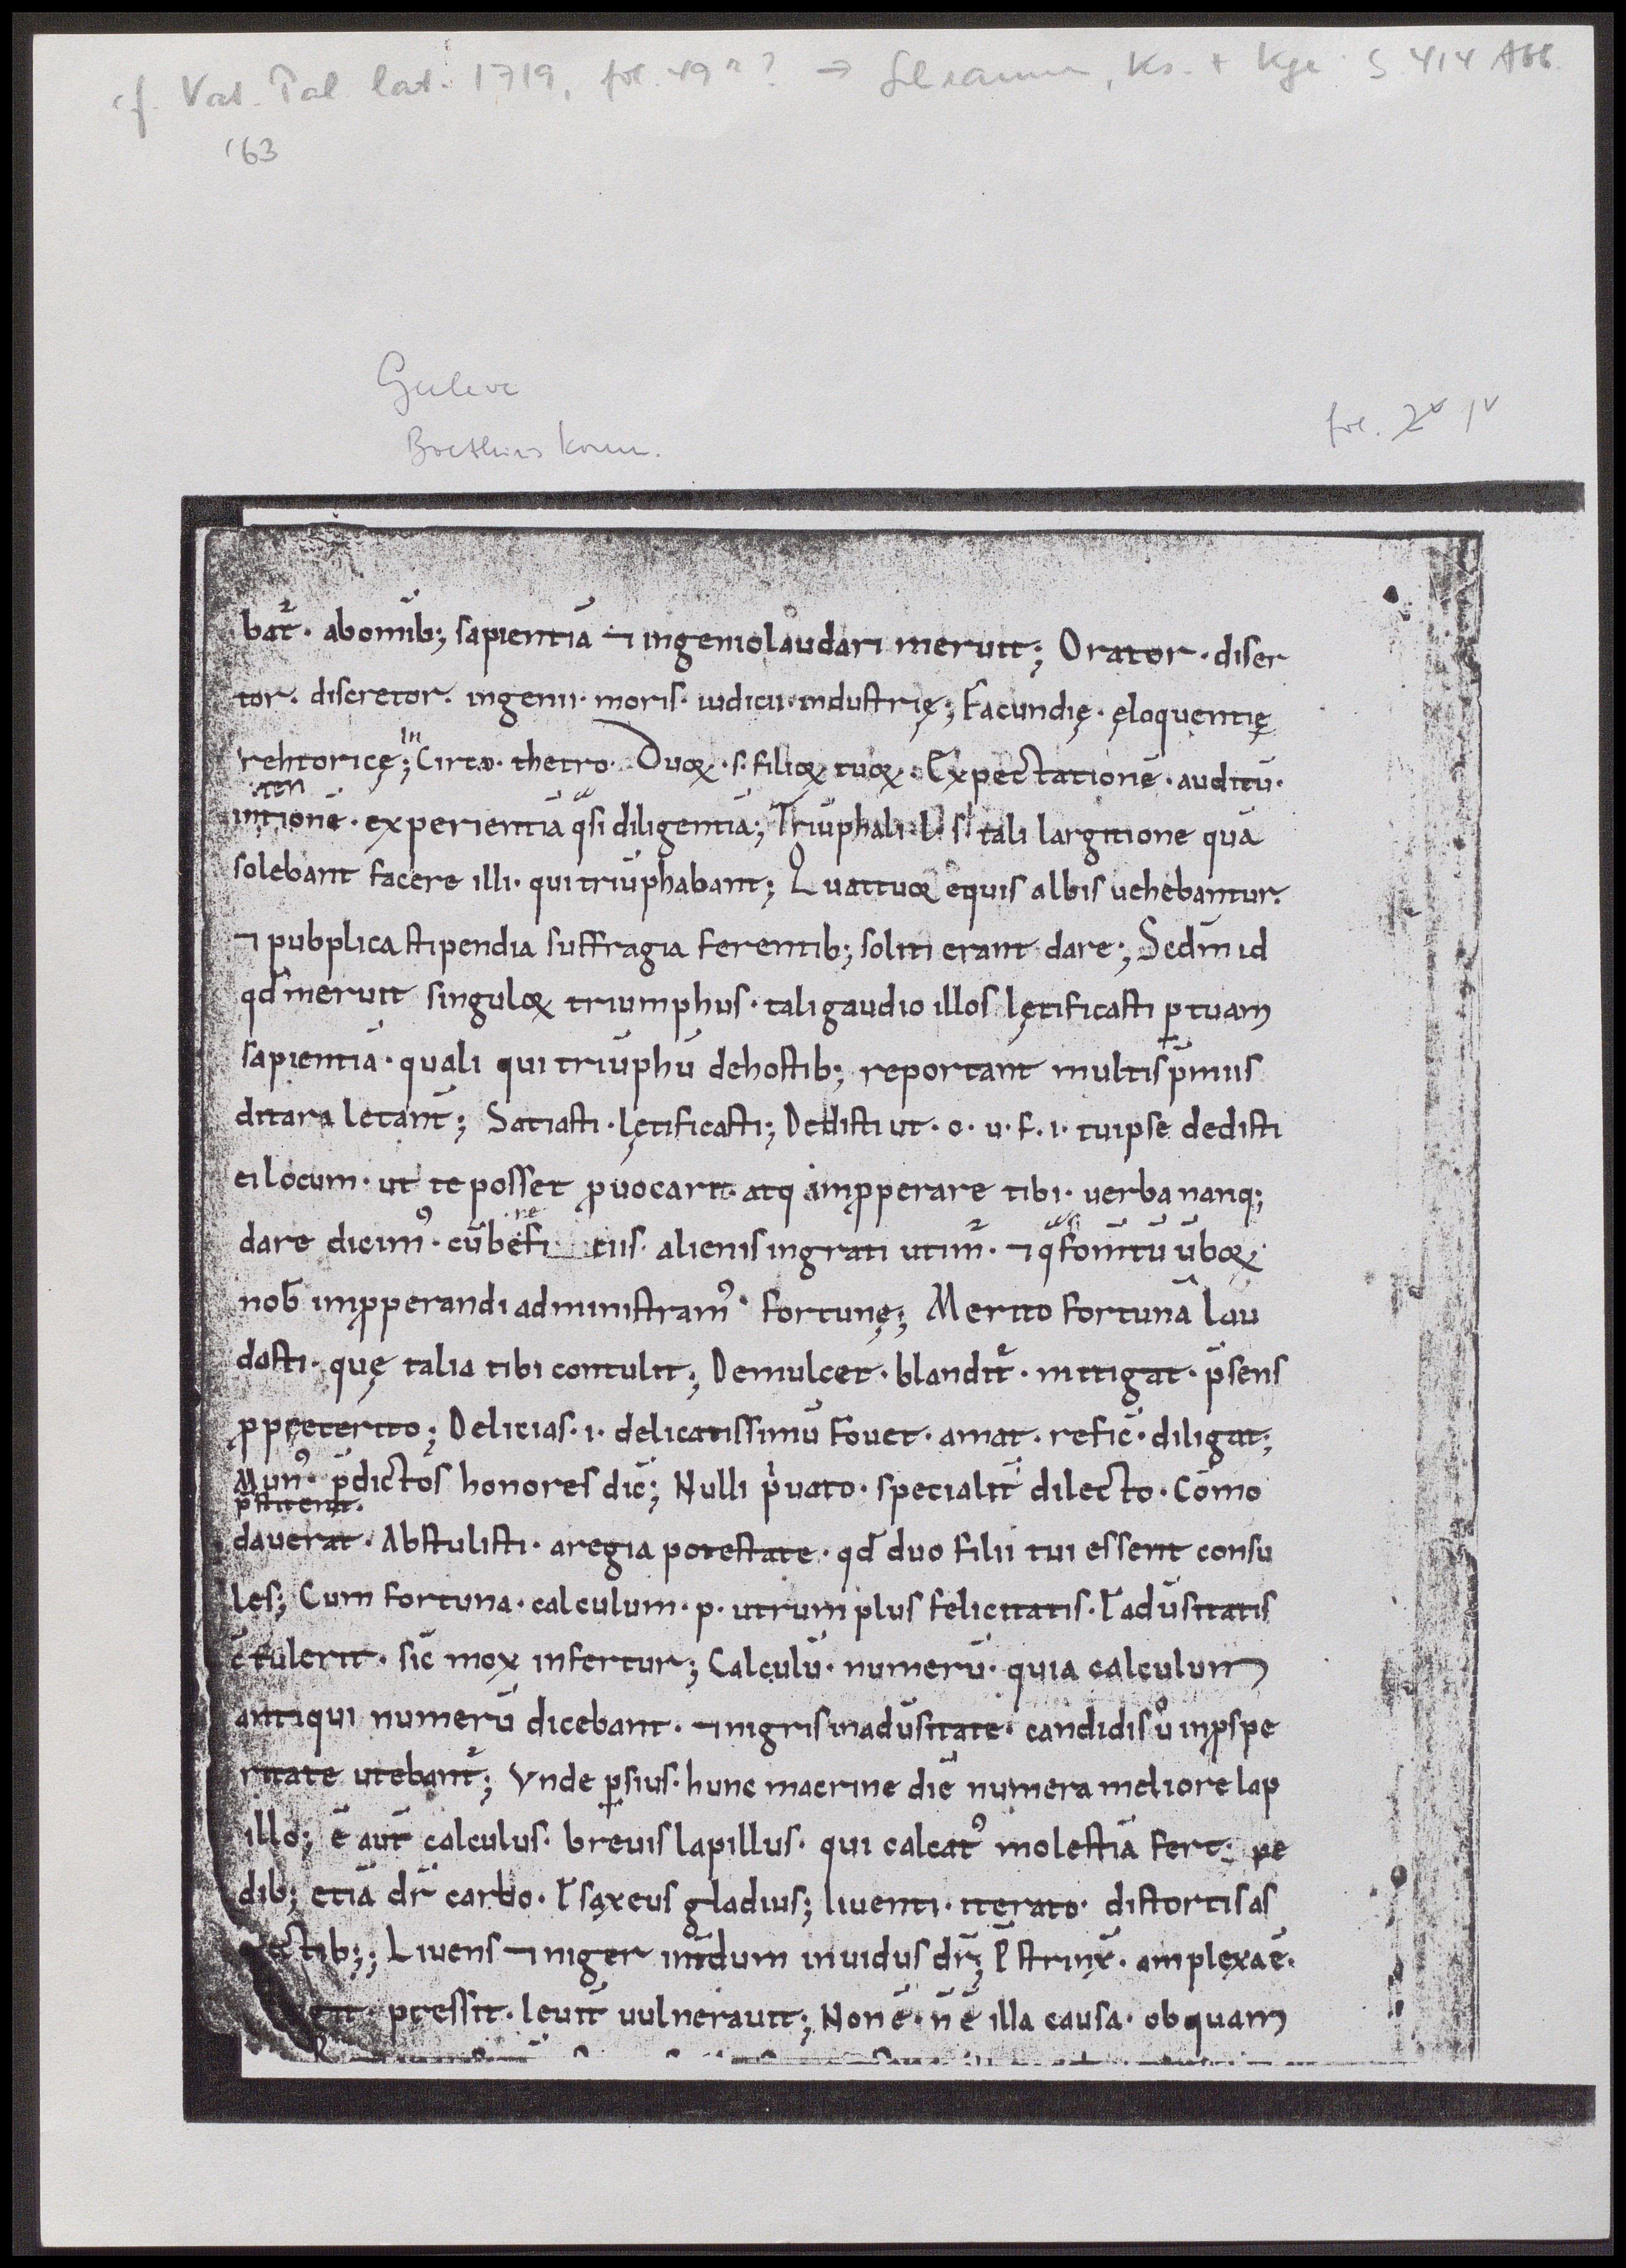 cf. Vat. Pal lat. 1719, fol. 49r? → Schramm, Ks. + Kge S 414 Abb.
'63
Boethius Komm.
fol. 2v 1v
bat᷑. abomīb; sapientiā ⁊ ingeniolaudari meruit; Orator. diser
tor. discretor. ingenii. moris. iudicii. industrię; Facundię. ęloquentię
rehtoricę; In Circo. thetro. Duoꝝ. s. filioꝝ tuoꝝ. Expectationē. auditū.
inten tionē. experientiā q̄si diligentiā; Triūphali. l. s. tali largitione quā
solebant facere illi. qui triūphabant; Quattuoꝝ equis albis uehebantur.
⁊ pubplica stipendia suffragia ferentib; soliti erant dare; Sedm̄ id
qd̄ meruit singuloꝝ triumphus. tali gaudio illos lętificasti ꝑ tuam
sapientiā. quali qui triūphū dehostib; reportant multis p̄miis
ditara letant᷑; Satiasti. lętificasti; Dedisti ut. o. u. f. i. tuipse dedisti
ei locum. ut te posset ꝓuocare. atq imꝓperare tibi. uerba nanq;
dare dicimꝰ. cū bene fi ciis. alienis ingrati utim᷑. ⁊ q̄si fomitū ūboꝝ
nob̄ imꝓperandi administramꝰ. fortunę; Merito fortunā lau
dasti. quę talia tibi contulit; Demulcet. blandit᷑. mitigat. p̄sens
ꝓ pręterito; Delicias. i. delicatissimū fouet. amat. refic̄. diligat;
Munꝰ. p̄dictos honores dic̄; Nulli pͥuato. specialit̄ dilecto. Cōmo
p̄stiterat.
dauerat. Abstulisti. aregia potestate. qd̄ duo filii tui essent consu
les; Cum fortuna. calculum. p. utrum plus felicitatis. ł adūsitatis
c̄tulerit. sic̄ mox infertur; Calculū. numerū. quia calculum
antiqui numerū dicebant. ⁊ nigris inadūsitate. candidis uͦ inꝓspe
ritate utebant᷑; Vnde ꝑsius. hunc macrine diē numera meliore lap
illo; ē aut̄ calculus. breuis lapillus. qui calcatꝰ molestiā fert: pe
dib; etiā dr̄ carbo. ł saxeus gladius; liuenti. iterato. distortis as
pectib;; Liuens ⁊ niger int̄dum inuidus dr̄; Pstrinx̄. amplexaē.
pressit. leuit᷑ uulnerauit; Non ē. n̄ ē illa causa. ob quam